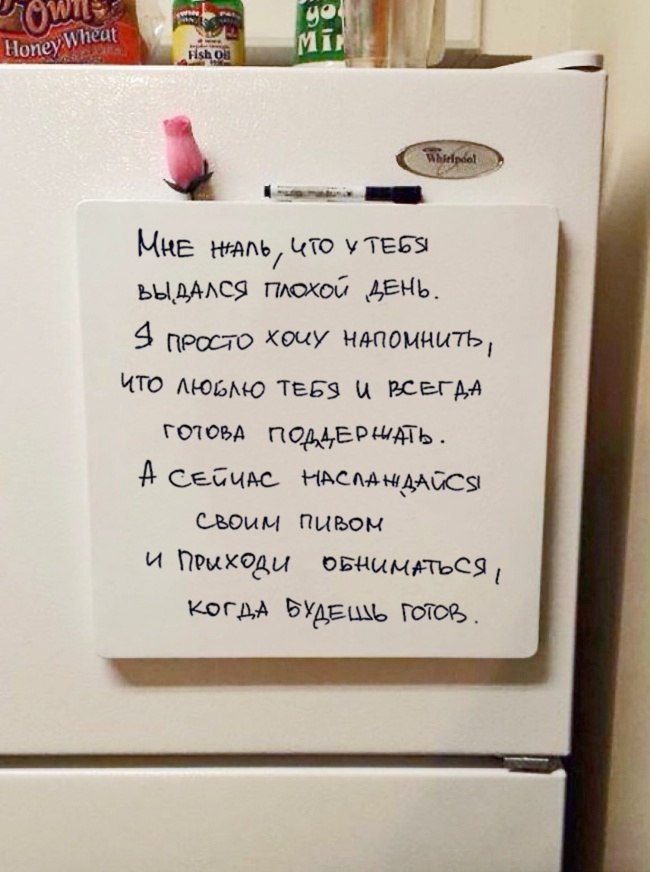 Own
Honey Wheat
Fish Oil
yo
Whirlpool
Мне жаль, что у тебя
выдался плохой день.
Я просто хочу напомнить,
что люблю тебя и всегда
готова поддержать.
А сейчас наслаждайся
своим пивом
и приходи обниматься,
когда будешь готов.